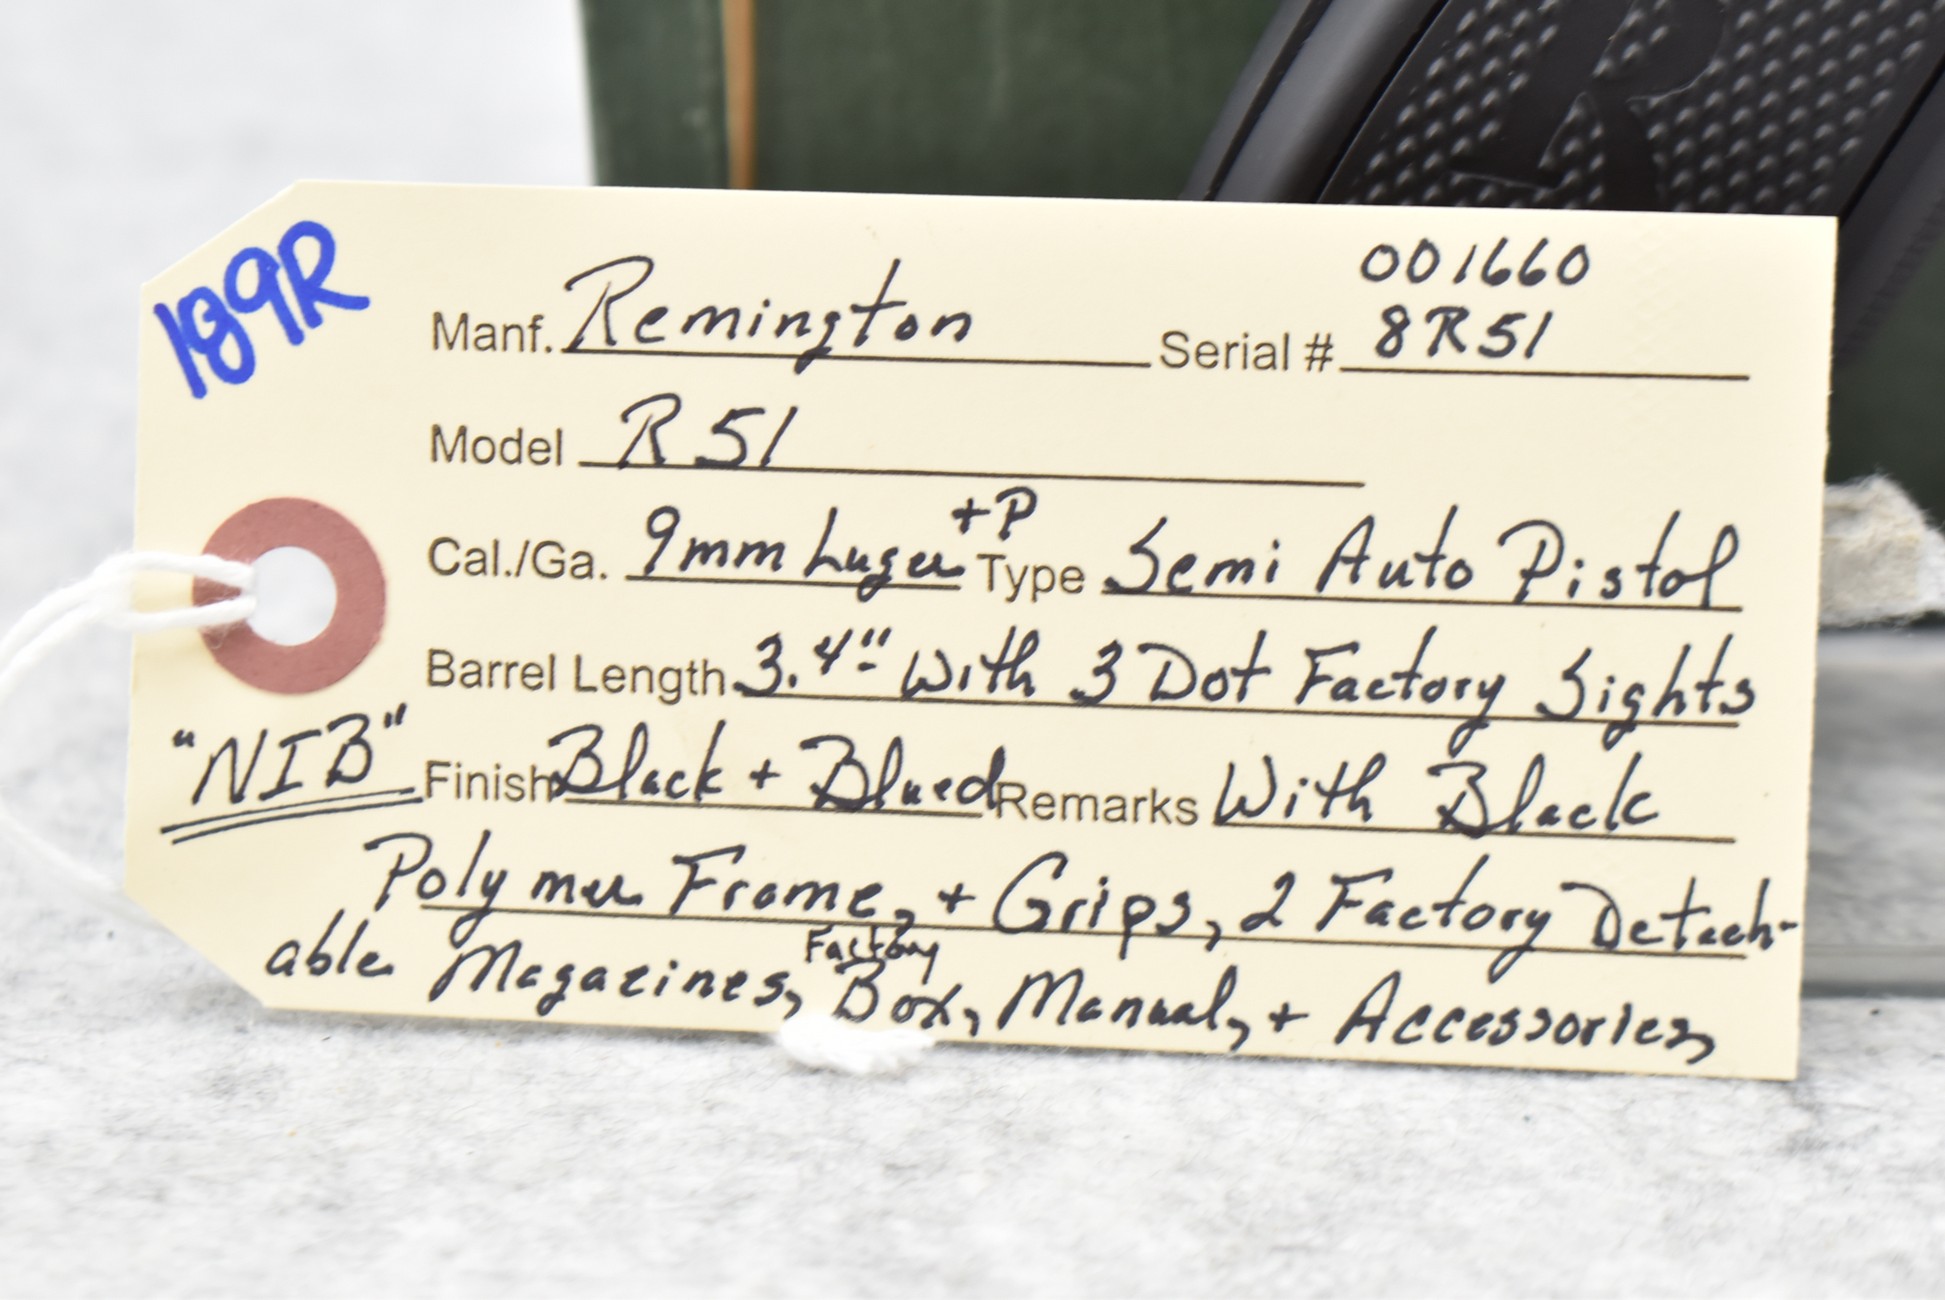 189R
001660
Manf. Remington Serial # 8R51
Model R 51
Cal./Ga. 9mm Luger +P Type Semi Auto Pistol
Barrel Length 3.4" With 3 Dot Factory Sights
"NIB" Finish Black + Blued Remarks With Black
Polymer Frame, + Grips, 2 Factory Detach-
able Magazines, Factory Box, Manual, + Accessories,
R